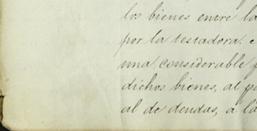 los bienes entre la
por la testadora.
una considerable
dichos bienes, al
al de deudas, a la